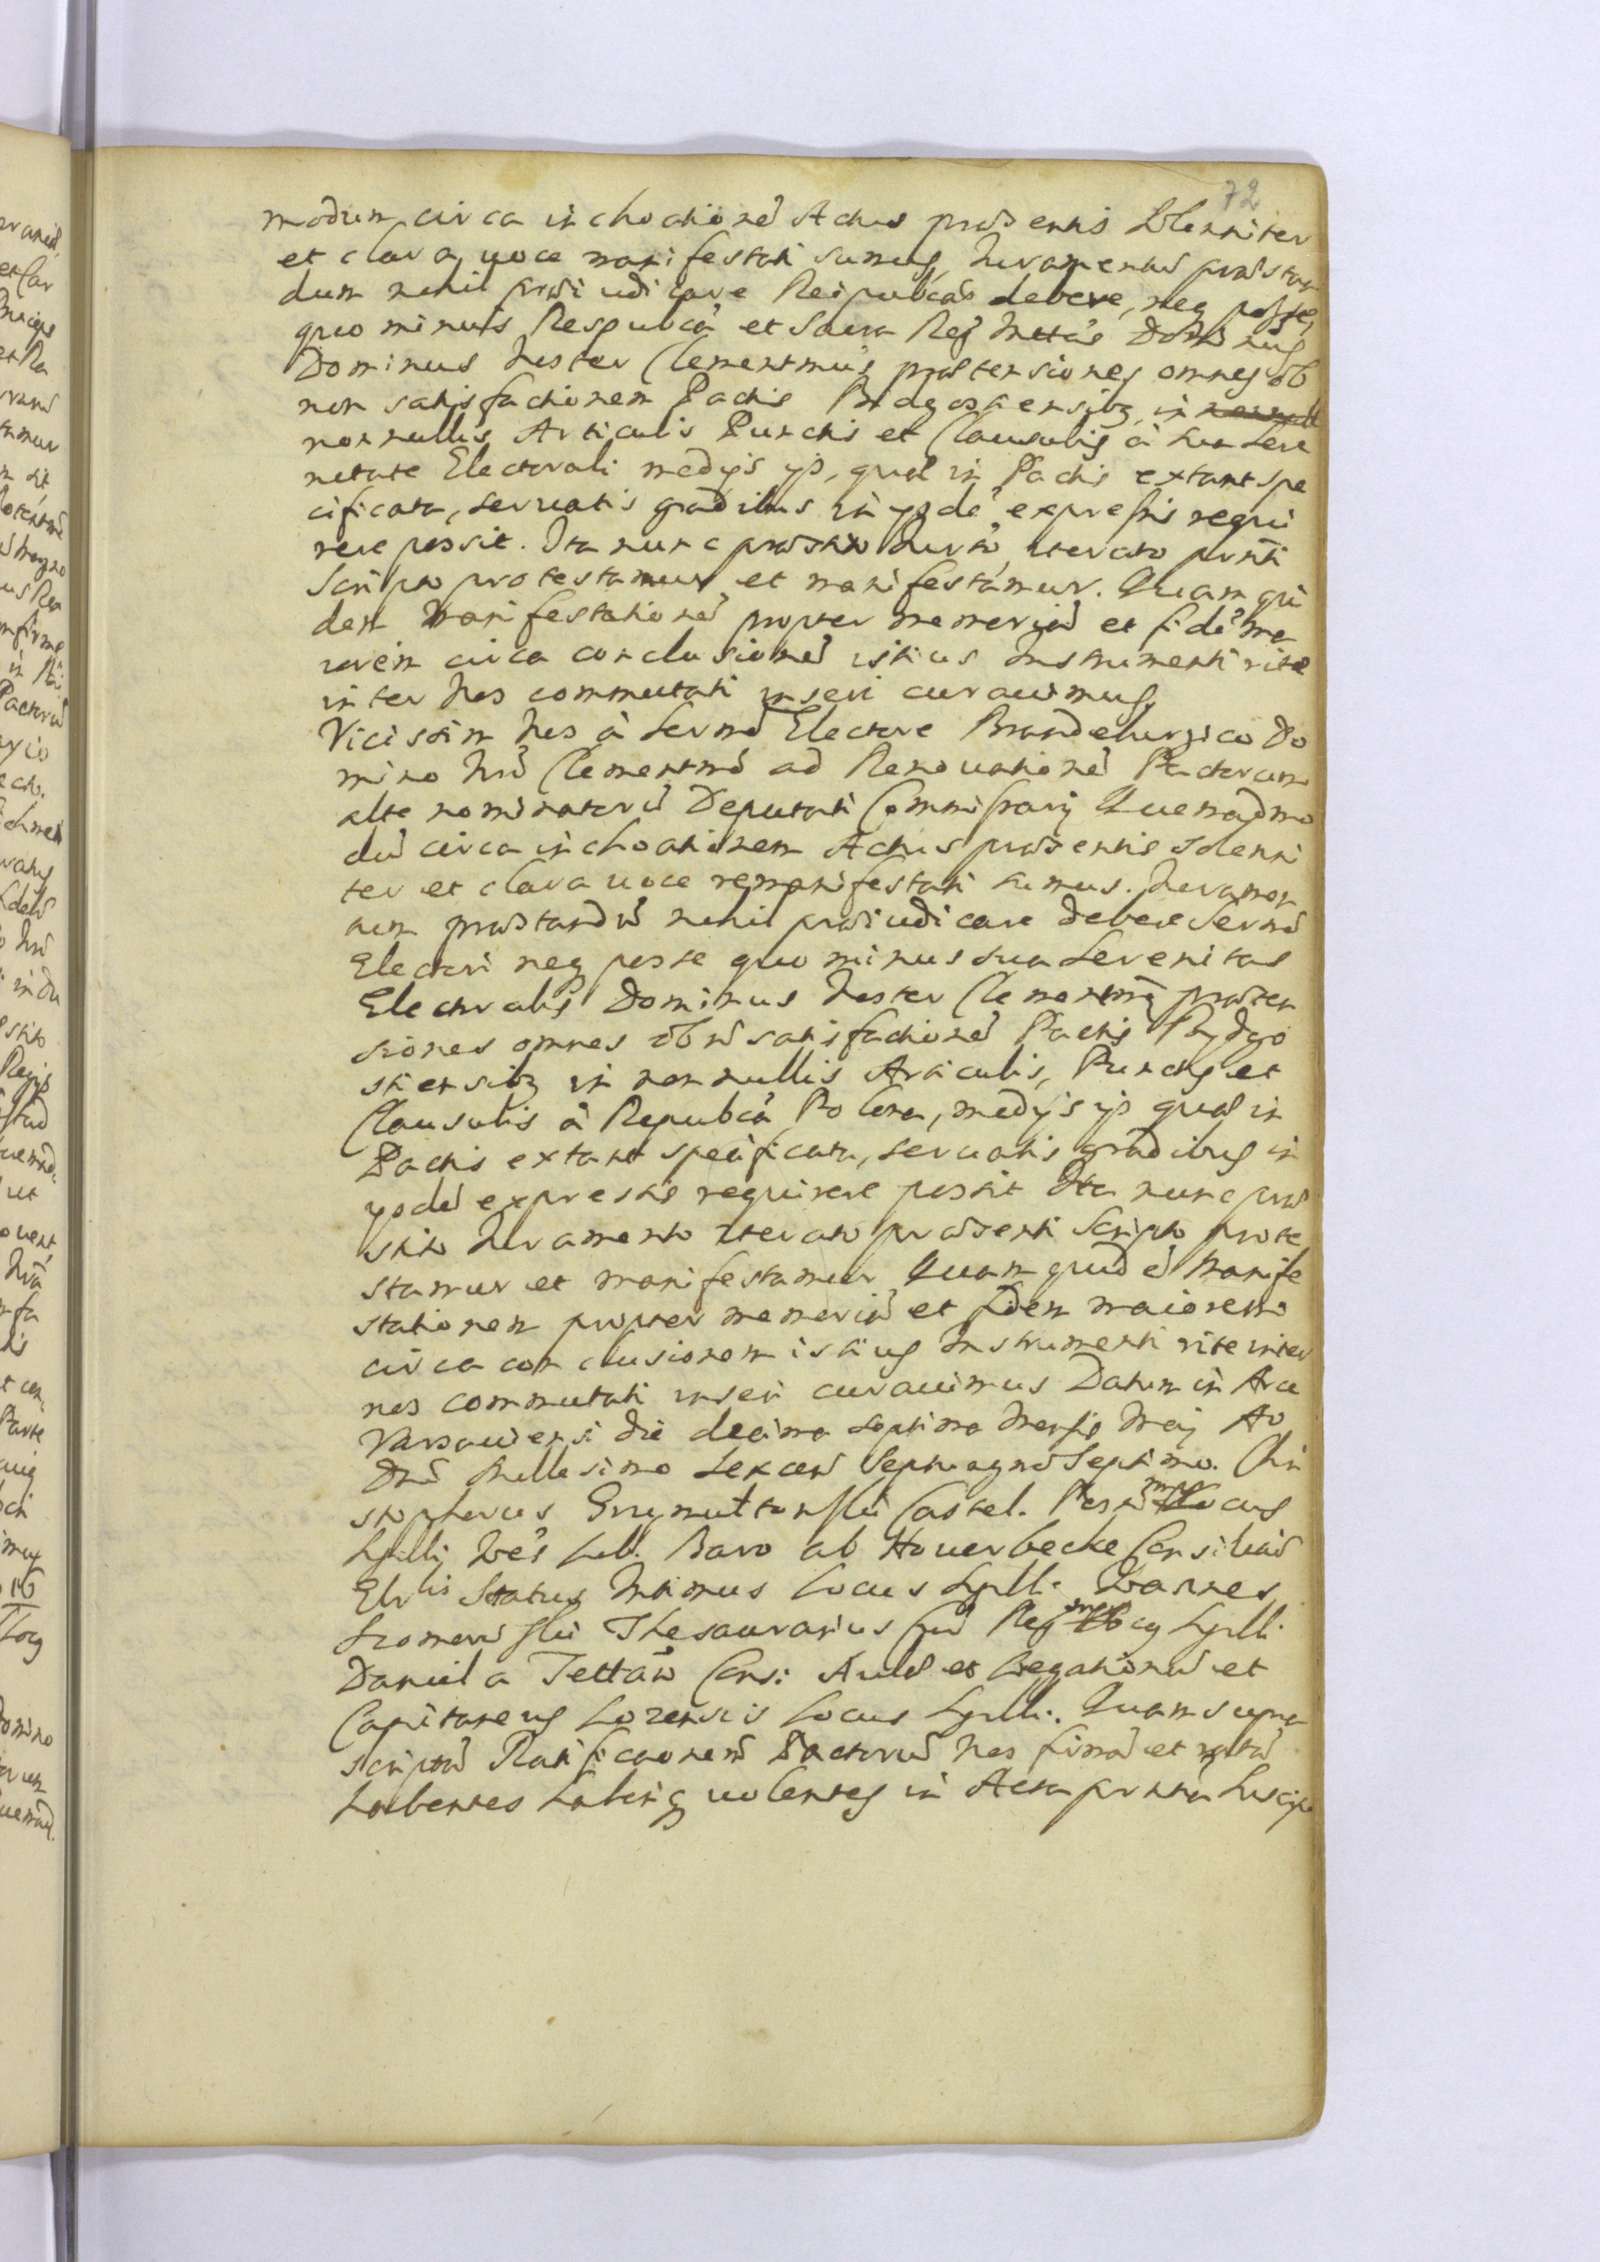 72
modum circa inchoationē Actus praesentis Solenniter
et clara uoce manifestati sumus, Iuramentū praestan
dum nihil praeiudicare Reipubcae debere, neq posse,
quo minus Respubca et Sacra Reg Mttas Dominus
Dominus Noster Clementmus praetensiones omnes ob
non satisfactionem Pactis Bidgostiensibq in
nonnullis Articulis Punctis et Clausulis à Sua Sere
nitate Electorali medijs ijs, quae in Pactis extant spe
cificata, seruatis gradibus in ijsdē expressis requi
rere possit. Ita nunc praestito Iurto, iterato prnti
Scripto protestamur et manifestamur. Quam qui
dem Manifestationē propter memoriā et fidē ma
iorem circa conclusionē istius Instrumenti rite
inter Nos commutati inseri curauimus,
Vicissim Nos à Sermo Electore Brandeburgico Do
mino Nro Clementmo ad Renouationē Pactorum
alte nominatorū Deputati Commissarij Quemadmo
dū circa inchoationem Actus praesentis Solenni
ter et clara uoce remanifestati sumus. Iuramen
tum praestandū nihil praeiudicare debere Sermo
Electori neq posse quo minus sua Serenitas
Electoralis Dominus Noster Clementmq praeten
siones omnes ob nō satisfactionē Pactis Bydgo
stiensibq in nonnullis Articulis, Punctis et
Clausulis à Repubca Polona, medijs ijs quae in
Pactis extant specificata, seruatis gradibus in
ijsdē expressis requirere possit Ita nunc prae
stito Iuramento iterato praesenti Scripto prote
stamur et manifestamur Quam quidē Manife
stationem propter memoriā et fidem maiorem
circa conclusionem istius Instrumenti rite inter
nos commutati inseri curauimus Datum in Arce
Varsauiensi die decima septima Mensis Maij Ao
Dni Millesimo Sexcen Septuagmo Septimo. Chri
stophorus Grzymułtowski Castel. Posn mp Locus
Sigilli Ioēs Lib. Baro ab Houerbecke Consiliariū
Elrlis Status Intimus Locus Sgilli. Ioannes
Szomowski Thesaurarius Cur Reg mp Locq Sgilli
Daniel a Tettaw Cons: Aulae et Legationū et
Capitaneus Lozensis Locus Sgilli. Quam supra
scriptā Ratificaonem Pactorū Nos firmā et ratā
habentes haberiq uolentes in Acta prntia Suscipi